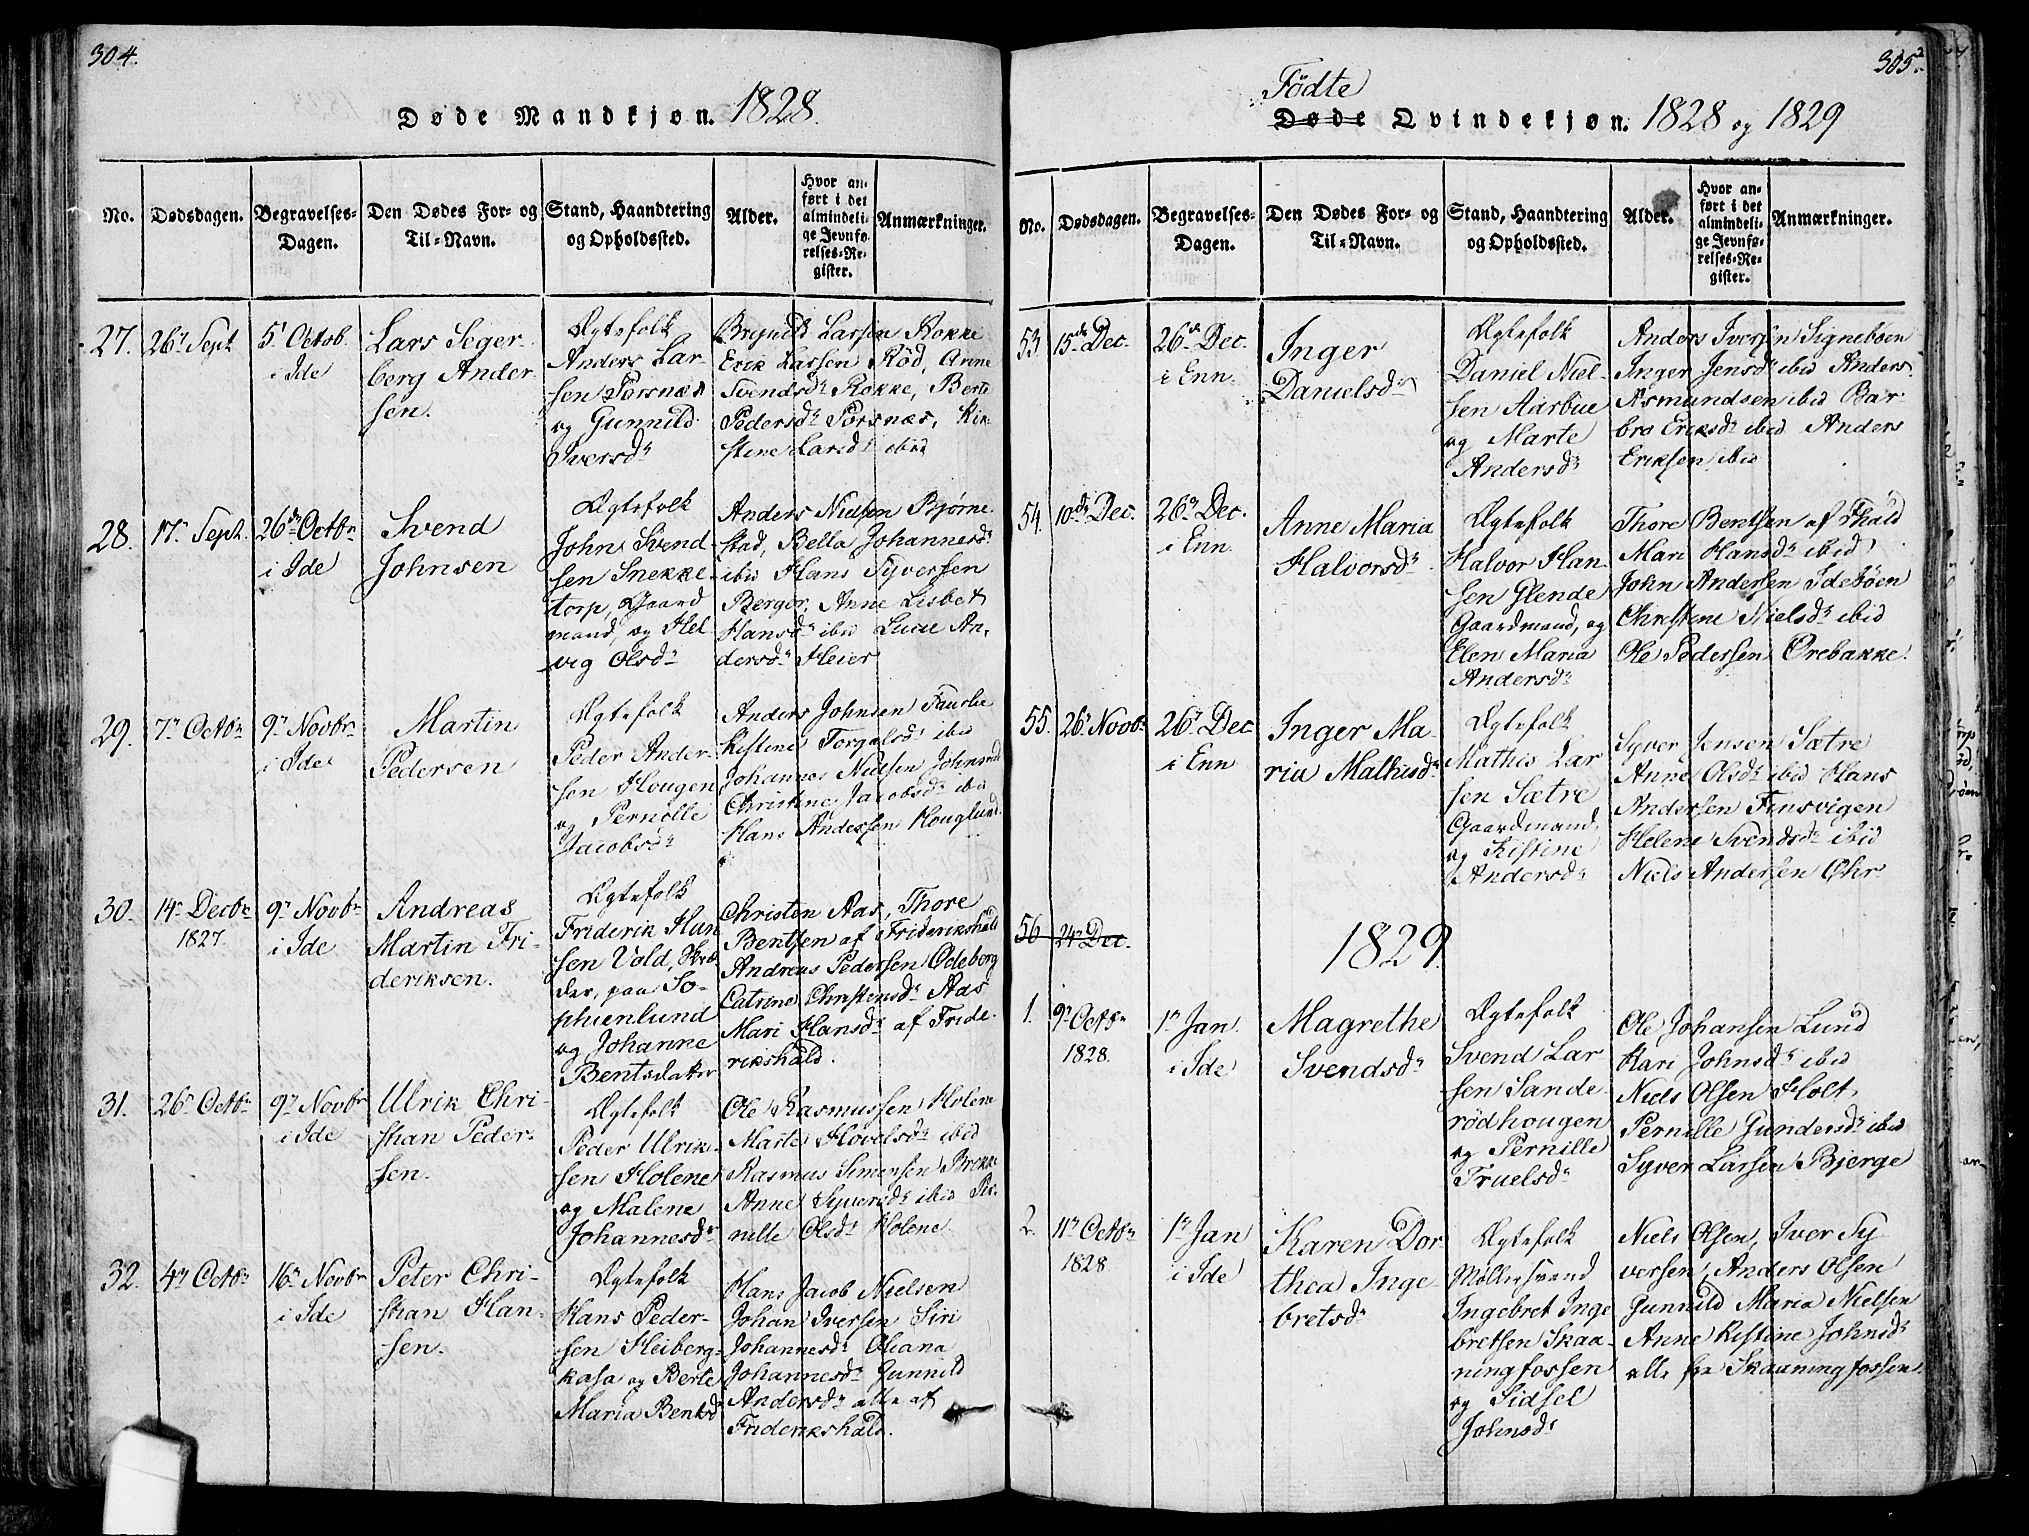 304.
Døde Mandkjøn. 1828.
No.
Dødsdagen.
Begravelses-
Dagen.
Den Dødes For- og
Til-Navn.
Stand, Haandtering
og Opholdssted.
Alder.
Hvor an-
ført i det
almindeli-
ge Jevnfø-
relses-Re-
gister.
Anmærkninger.
27.
26r Sept
5r Octob.
i Ide
Lars Seger-
berg Ander
sen.
Ægtefolk
Anders Lar-
sen Torsnæs
og Gunnild
Iversdr
Larsen Rokke
Erik Larsen Röd, Anne
Svendsdr Rokke, Berte
Pedersdr Torsnæs, Kir-
stine Larsdr ibid
28.
17r Sept.
26de Octbr
i Ide
Svend
Johnsen
Ægtefolk
John Svend-
sen Snekke-
torp, Gaard
mand, og Hel
vig Olsdr
Anders Nielsen Bjørne-
stad, Bella Johannesdr
ibid Hans Syversen
Berger, Anne Lisbet
Hansdr ibid Lucie An-
dersdr Heier
29.
7r Octbr
9r Novbr
i Ide
Martin
Pedersen
Ægtefolk
Peder Ander-
sen Hougen
og Pernille
Jacobsdr
Anders Johnsen
Kistine Torgalsdr ibid
Johannes Nielsen
Christine Jacobsdr ibid
Hans Andersen Houglund.
30.
14r Decbr
1827.
9r Novbr
i Ide
Andreas
Martin Fri-
deriksen.
Ægtefolk
Friderik Han
sen Vold,
der, paa So-
phienlund
og Johanne
Bentsdatter
Christen Aas, Thore
Bentsen af Friderikshald
Andreas Pedersen Ödeberg
Catrine Christensdr Aas
Mari Hansdr af Fride-
rikshald.
31.
26r Octbr
9r Novbr
i Ide
Ulrik Chri-
stian Peder-
sen.
Ægtefolk
Peder Ulrik-
sen Holene
og Malene
Johannesdr
Ole Rasmussen Holene
Marte Hovelsdr ibid
Rasmus Simensen Brekke
Anne Syversdr ibid Per-
nille Olsdr Holene.
32.
4r Octbr
16r Novbr
i Ide
Peter Chri-
stian Han-
sen.
Ægtefolk
Hans Peder-
sen Heiberg-
kasa og Berte
Maria Bentsd
Hans Jacob Nielsen
Johan Iversen Siri
Johannesdr Oleana
Johannesdr Gunnild
Andersdr alle af
Friderikshald.
305.
Födte
Døde Qvindekjøn. 1828 og 1829
No.
Dødsdagen.
Begravelses-
Dagen.
Den Dødes For- og
Til-Navn.
Stand, Haandtering
og Opholdssted.
Alder.
Hvor an-
ført i det
almindeli-
ge Jevnfø-
relses-Re-
gister.
Anmærkninger.
53.
15de Dec.
26de Dec.
i Enn.
Inger
Danielsdr
Ægtefolk
Daniel Niel-
sen Aarbue
og Marte
Andersdr
Anders Iversen Signeböen
Inger Jensdr ibid Anders
Asmundsen ibid Bar-
bro Eriksdr ibid Anders
Eriksen ibid
54.
10de Dec.
26r Dec.
i Enn.
Anne Maria
Halvorsdr
Ægtefolk
Halvor Han-
sen Glende
Gaardmand, og
Elen Maria
Andersdr
Thore Bentsen af Fhald
Mari Hansdr ibid
John Andersen Ideböen
Christine Nielsdr ibid
Ole Pedersen Örebakke.
55.
26r Novbr
26r Dec
i Enn
Inger Ma-
ria Mathisdr
Ægtefolk
Mathis Lar
sen Sætre
Gaardmand,
og Kistine
Andersdr
Syver Jensen Sætre
Anne Olsdr ibid Hans
Andersen Tinsvigen
Helene Svendsdr ibid
Niels Andersen Öhr
56
24r Dec.
1829.
1.
9r Octbr
1828.
1r Jan.
i Ide
Magrethe
Svendsdr
Ægtefolk
Svend Lar
sen Sande-
rödhougen
og Pernille
Truelsdr
Ole Johansen Lund
Kari Johnsdr ibid
Niels Olsen Holt,
Pernille Gundersdr ibid
Syver Larsen Bjerge
2.
11r Octbr
1828.
1r Jan
i Ide
Karen Dor
thea Inge
bretsdr
Ægtefolk
Möllersvend
Ingebret Inge
bretsen Skaa-
ningfossen
og Sidsel
Johnsdr
Niels Olsen, Iver Sy-
versen, Anders Olsen
Gunnild Maria Nielsen
Anne Kistine Johnsdr
alle fra Skaaningfossen.